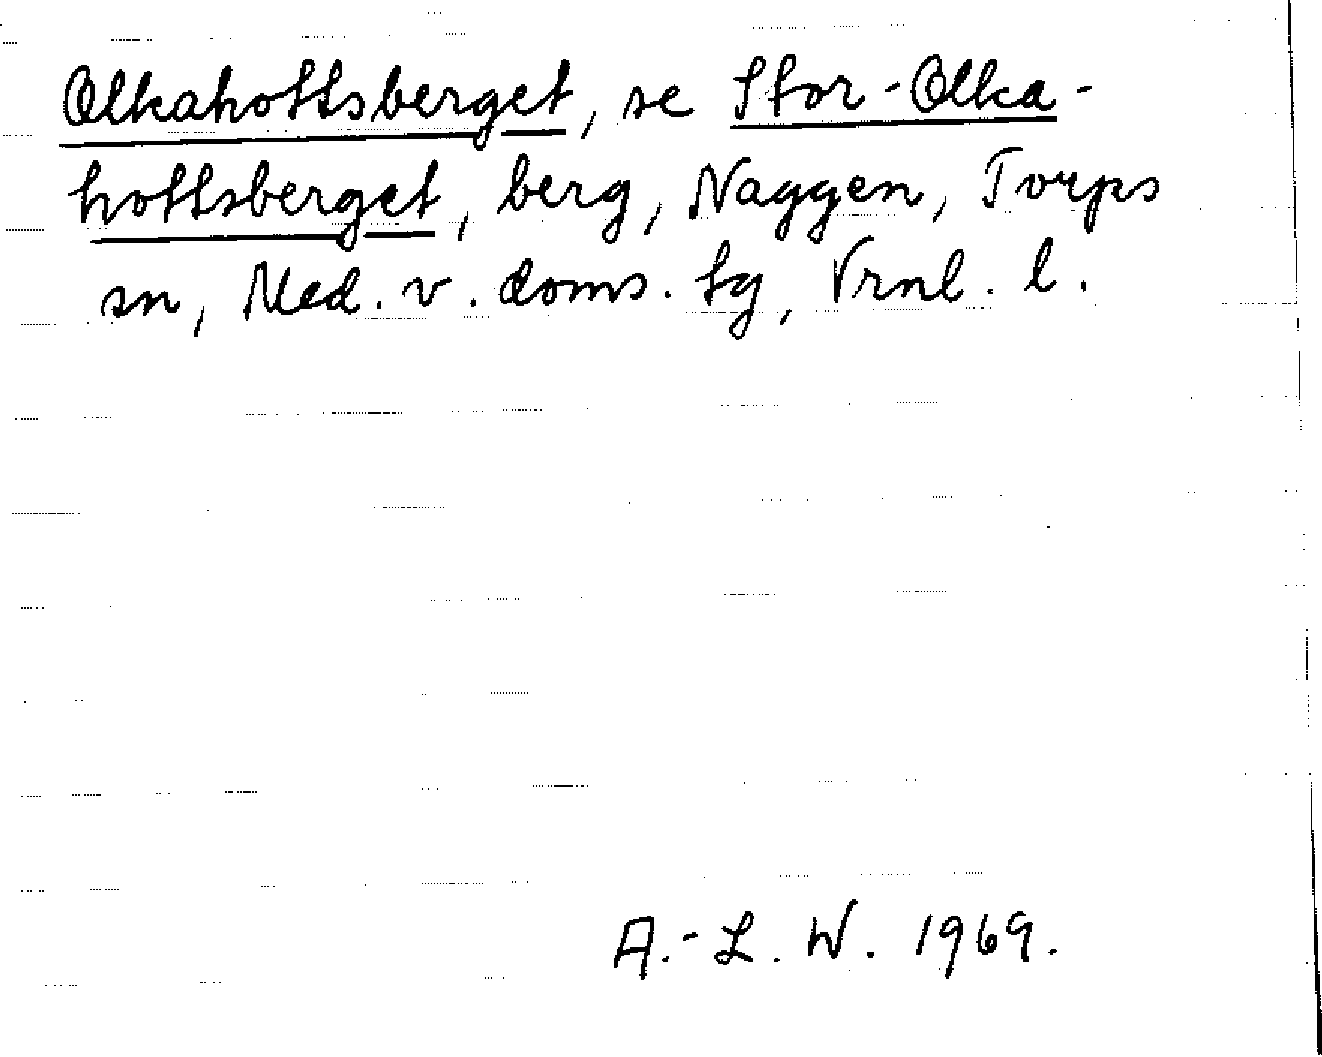 Olkahottsberget, se Stor-Olka-
hottsberget, berg, Naggen, Torps
sn, Med. v. doms. tg, Vrnl. l.
A.-L. W. 1969.